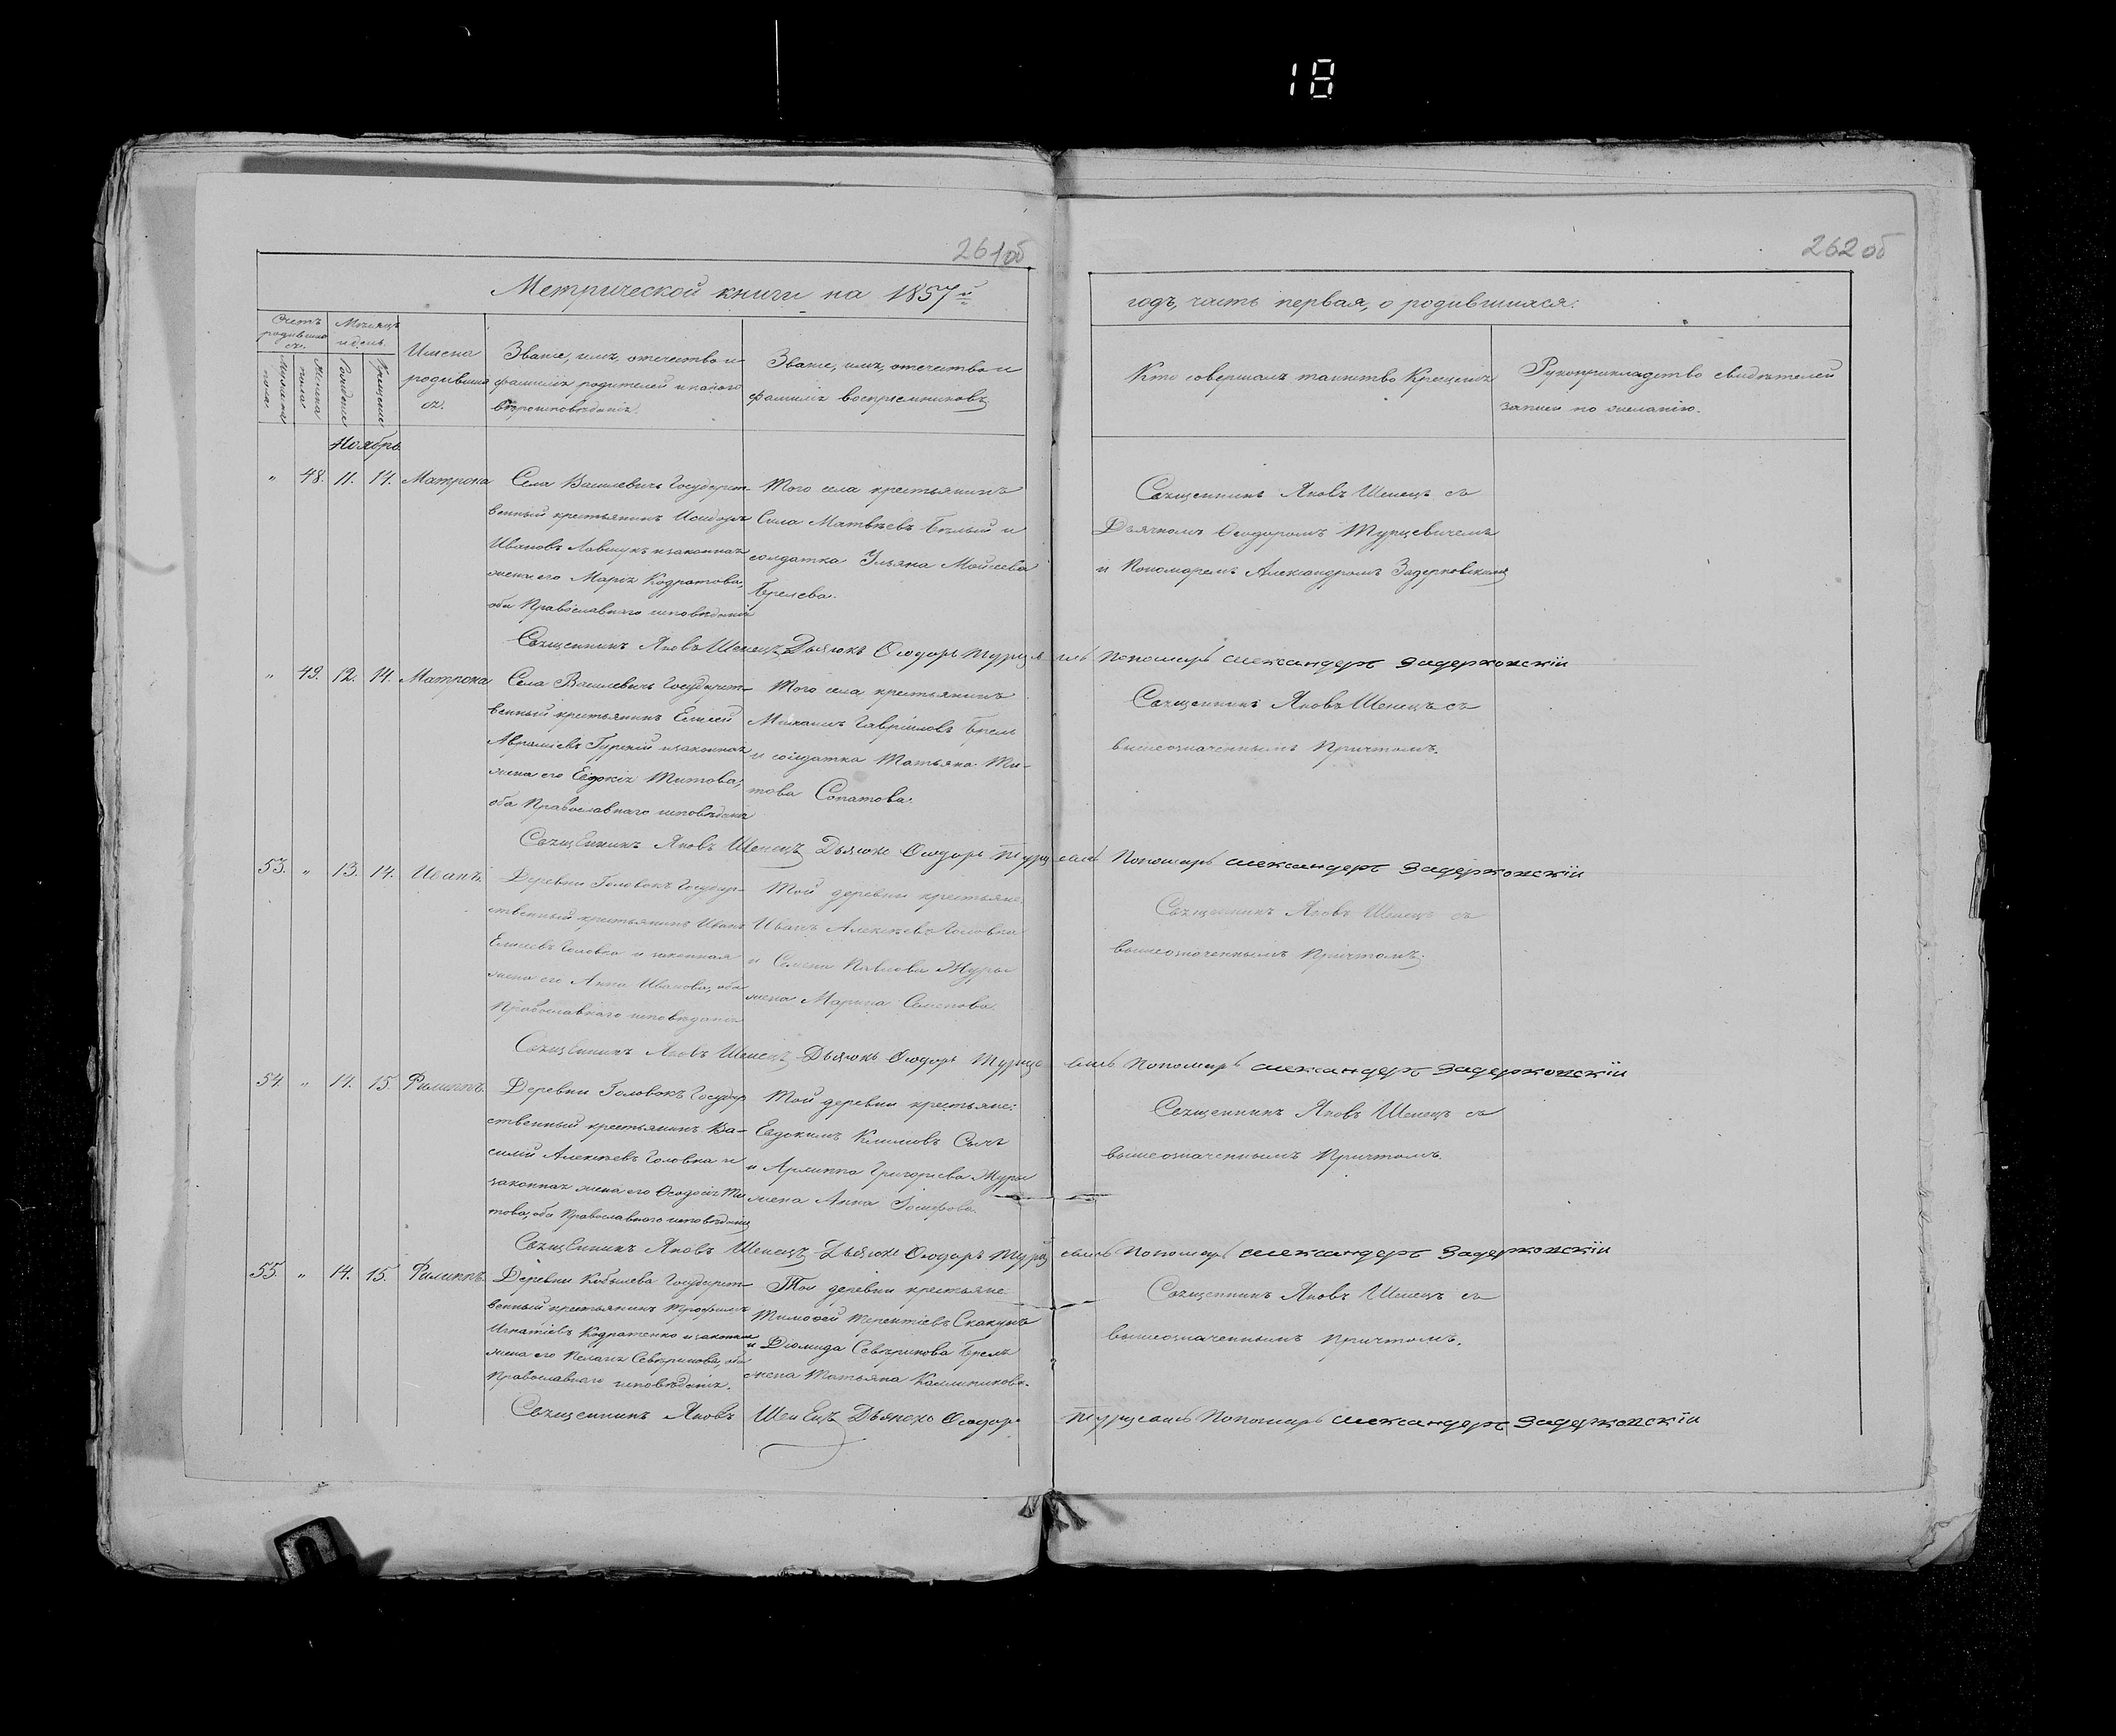 18
261об
262об
Метрической книги на 1857й
годъ, часть первая, о родившихся.
Счетъ родившихся.
Мужеска пола
Женска пола
Месяцъ и день.
Рожденія
Крещенія
Имена родившихся.
Званіе, имя, отечество и
фамилія родителей и какого
вѣроисповѣданія.
Званіе, имя, отечество и
фамилія воспріемниковъ
Кто совершалъ таинство Крещенія
Рукоприкладство свидѣтелей
записи по желанію.
Ноябрь
" 48. 11. 14. Матрона
Села Василевичъ Государст-
венный крестьянинъ Исидоръ
Ивановъ Лавшукъ и законная
жена его Марія Кодратова,
оба Православнаго исповѣданія
Того села крестьянинъ
Сила Матвѣевъ Бѣлый и
солдатка Ульяна Моисеева
Брелева.
Священникъ Яковъ Шенецъ съ
Дьячкомъ Ѳеодоромъ Турцевичемъ
и Пономаремъ Александромъ Задерковскимъ
Священникъ Яковъ Шенецъ Дьячокъ Ѳеодоръ Турцевичь Пономарь Александеръ Задерковскій
" 49. 12. 14. Матрона
Села Василевичъ Государст-
венный крестьянинъ Елисей
Аврамiевъ Гурскій и законная
жена его Евдокія Титова,
оба Православнаго исповѣданія
Того села крестьянинъ
Михаилъ Гавріиловъ Брель
и солдатка Татьяна Ти-
това Сопатова.
Священникъ Яковъ Шенецъ съ
вышеозначеннымъ Причтомъ.
Священникъ Яковъ Шенецъ Дьячокъ Ѳеодоръ Турцевичь Пономарь Александеръ Задерковскій
53. " 13. 14. Иванъ.
Деревни Головокъ Государ-
ственный крестьянинъ Иванъ
Елисеевъ Головка и законная
жена его Анна Иванова, оба
Православнаго исповѣданія
Той деревни крестьяне:
Иванъ Алексѣевъ Головка
и Семена Павлова Журы
жена Марина Семенова.
Священникъ Яковъ Шенецъ съ
вышеозначеннымъ Причтомъ.
Священникъ Яковъ Шенецъ Дьячокъ Ѳеодоръ Турцевичь Пономарь Александеръ Задерковскій
54. " 14. 15. Филиппъ.
Деревни Головокъ Государ
ственный крестьянинъ Ва-
силій Алексѣевъ Головка и
законная жена его Ѳеодосія Ти
това, оба Православнаго исповѣданія
Той деревни крестьяне:
Евдокимъ Климовъ Сычъ
и Архиппа Григорьева Журы
жена Анна Іосифова.
Священникъ Яковъ Шенецъ съ
вышеозначеннымъ Причтомъ.
Священникъ Яковъ Шенецъ Дьячокъ Ѳеодоръ Турцевичь Пономарь Александеръ Задерковскій
55. " 14. 15. Филиппъ.
Деревни Кобылева Государст-
венный крестьянинъ Трофимъ
Игнатіевъ Кодратенко и законная
жена его Пелагія Севѣринова, оба
Православнаго исповѣданія.
Той деревни крестьяне
Тимофей Терентіевъ Скакунъ
и Діомида Севѣринова Бреля
жена Татьяна Калиникова.
Священникъ Яковъ Шенецъ съ
вышеозначеннымъ Причтомъ.
Священникъ Яковъ Шенецъ Дьячокъ Ѳеодоръ Турцевичь Пономарь Александеръ Задерковскій